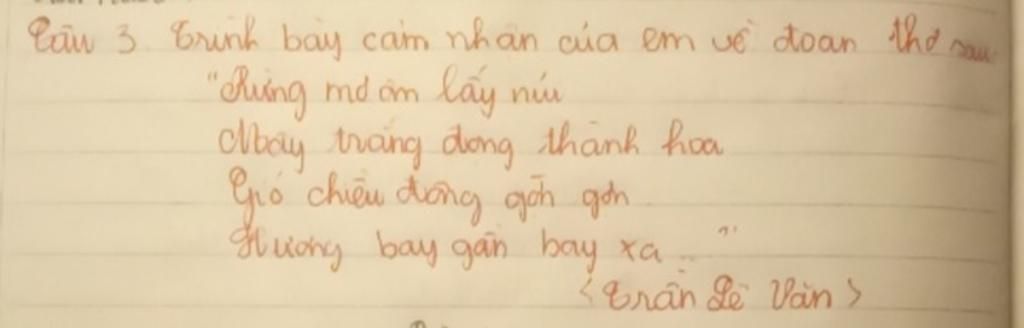 Câu 3 Trình bày cảm nhận của em về đoạn thơ sau
"Rừng mơ ôm lấy núi
Mây trắng đọng thành hoa
Gió chiều đông gờn gợn
Hương bay gần bay xa..."
<Trần Lê Văn>